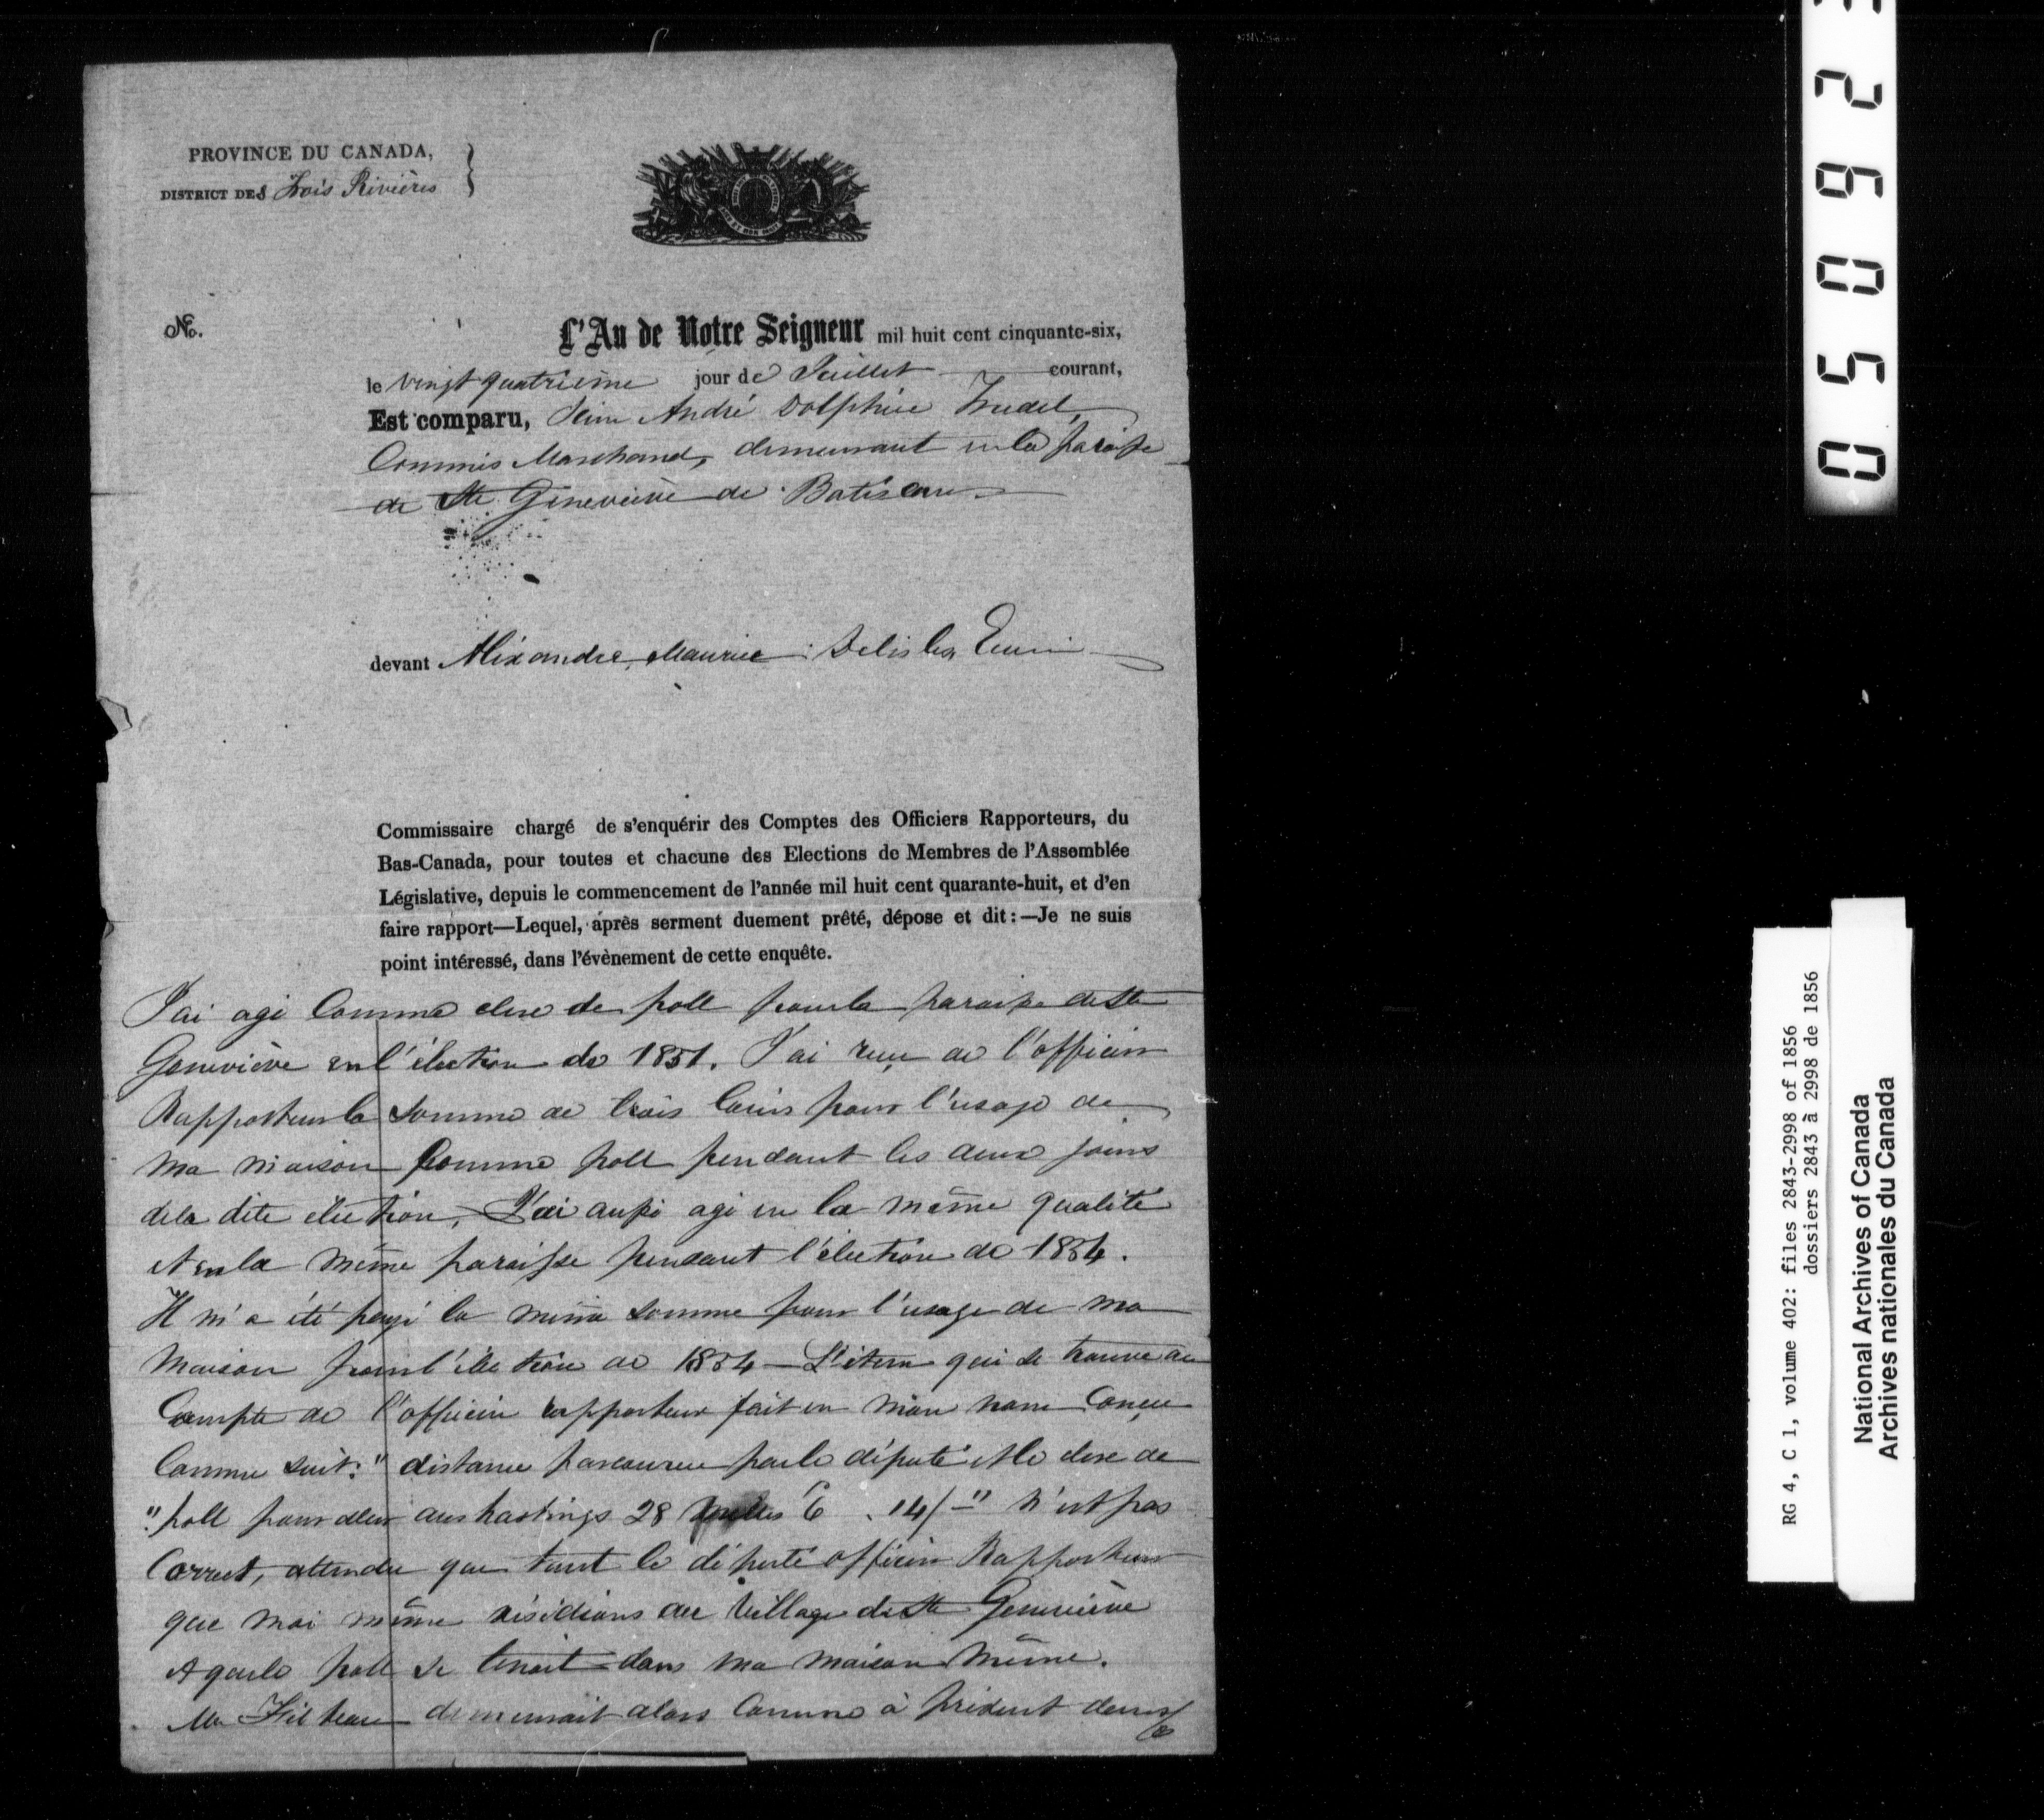 PROVINCE DU CANADA,
DISTRICT DES Trois Rivières
No.
L'An de Notre Seigneur mil huit cent cinquante-six,
le vingt quatrième jour de Juillet courant,
Est comparu, Sieur André Dolphice Trudel,
Commis Marchand, demeurant en la paroisse
de Ste Geneviève de Batiscan
devant Alixandre Maurice Delisle, Ecuier
Commissaire chargé de s'enquérir des Comptes des Officiers Rapporteurs, du
Bas-Canada, pour toutes et chacune des Elections de Membres de l'Assemblée
Législative, depuis le commencement de l'année mil huit cent quarante-huit, et d'en
faire rapport—Lequel, après serment duement prêté, dépose et dit:—Je ne suis
point intéressé, dans l'évènement de cette enquête.
J'ai agi comme clerc de poll pour la paroisse de Ste
Geneviève en l'élection de 1851. J'ai reçu de l'officier
Rapporteur la somme de trois louis pour l'usage de
ma maison comme poll pendant les deux jours
de la dite élection, J'ai aussi agi en la même qualité
et en la même paroisse pendant l'élection de 1854.
Il m'a été payé la même somme pour l'usage de ma
maison pour l'élection de 1854 — L'item qui se trouve au
Compte de l'officier rapporteur fait en mon nom conçu
comme suit: "distance parcourue par le député et le clerc de
"poll pour aller aux hustings 28 milles 14/–" n'est pas
Correct, attendu que tant le député officier Rapporteur
que moi même résidions au Village de Ste Geneviève
et que le poll se tenait dans ma maison même.
Mr Filteau demeurait alors comme à présent dans
0 5 0 9 2
RG 4, C 1, volume 402: files 2843-2998 of 1856
dossiers 2843 à 2998 de 1856
National Archives of Canada
Archives nationales du Canada